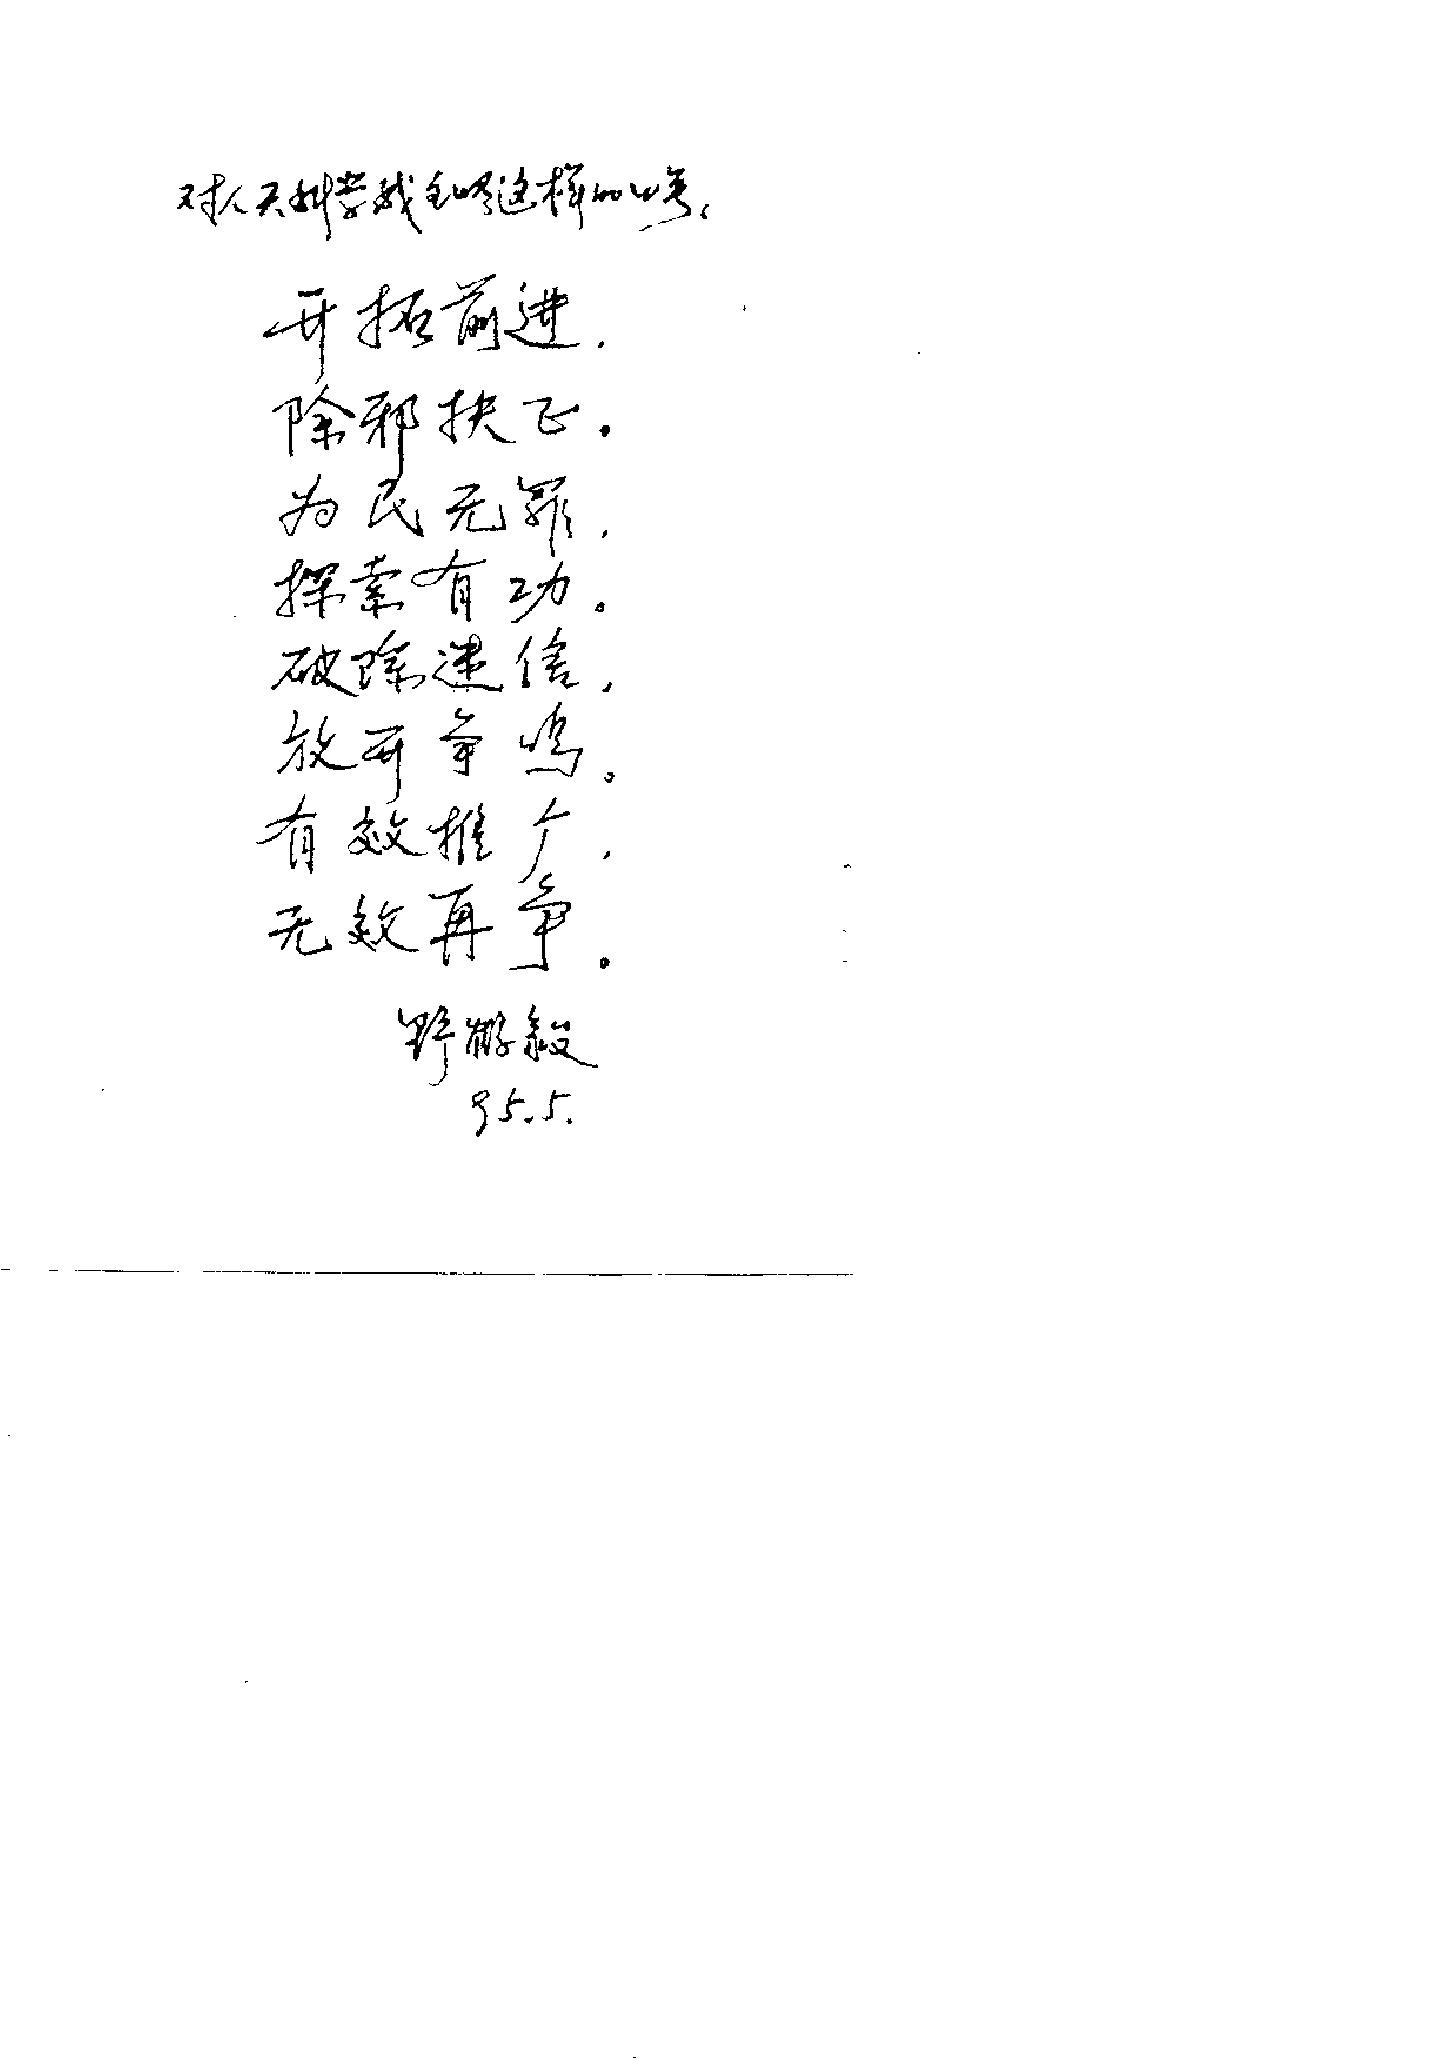 对人天科学我有这样的口号：
开拓前进，
除邪扶正。
为民无罪，
探索有功。
破除迷信，
放开争鸣。
有效推广，
无效再争。
野
95.5.